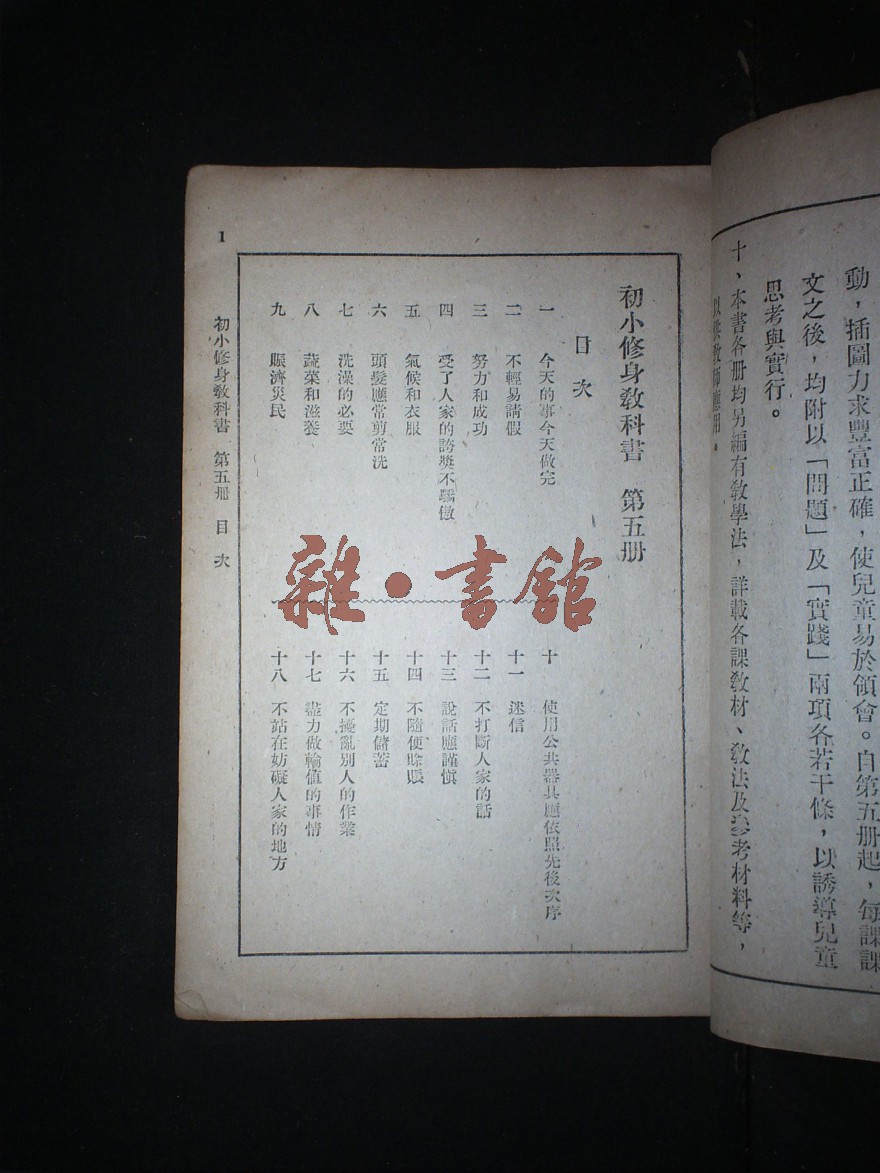 動，插圖力求豐富正確，使兒童易於領會。自第五册起，每課課
文之後，均附以「問題」及「實踐」兩項各若干條，以誘導兒童
思考與實行。
十、本書各册均另編有教學法，詳載各課教材、教法及參考材料等，
以供教師應用。
初小修身教科書　第五册
目　次
一　今天的事今天做完
二　不輕易請假
三　努力和成功
四　受了人家的誇獎不驕傲
五　氣候和衣服
六　頭髮應常剪常洗
七　洗澡的必要
八　蔬菜和滋養
九　賑濟災民
十　使用公共器具應依照先後次序
十一　迷信
十二　不打斷人家的話
十三　說話應謹慎
十四　不隨便賒賬
十五　定期儲蓄
十六　不擾亂別人的作業
十七　盡力做輪值的事情
十八　不站在妨礙人家的地方
初小修身教科書　第五册　目　次
1
雜·書館